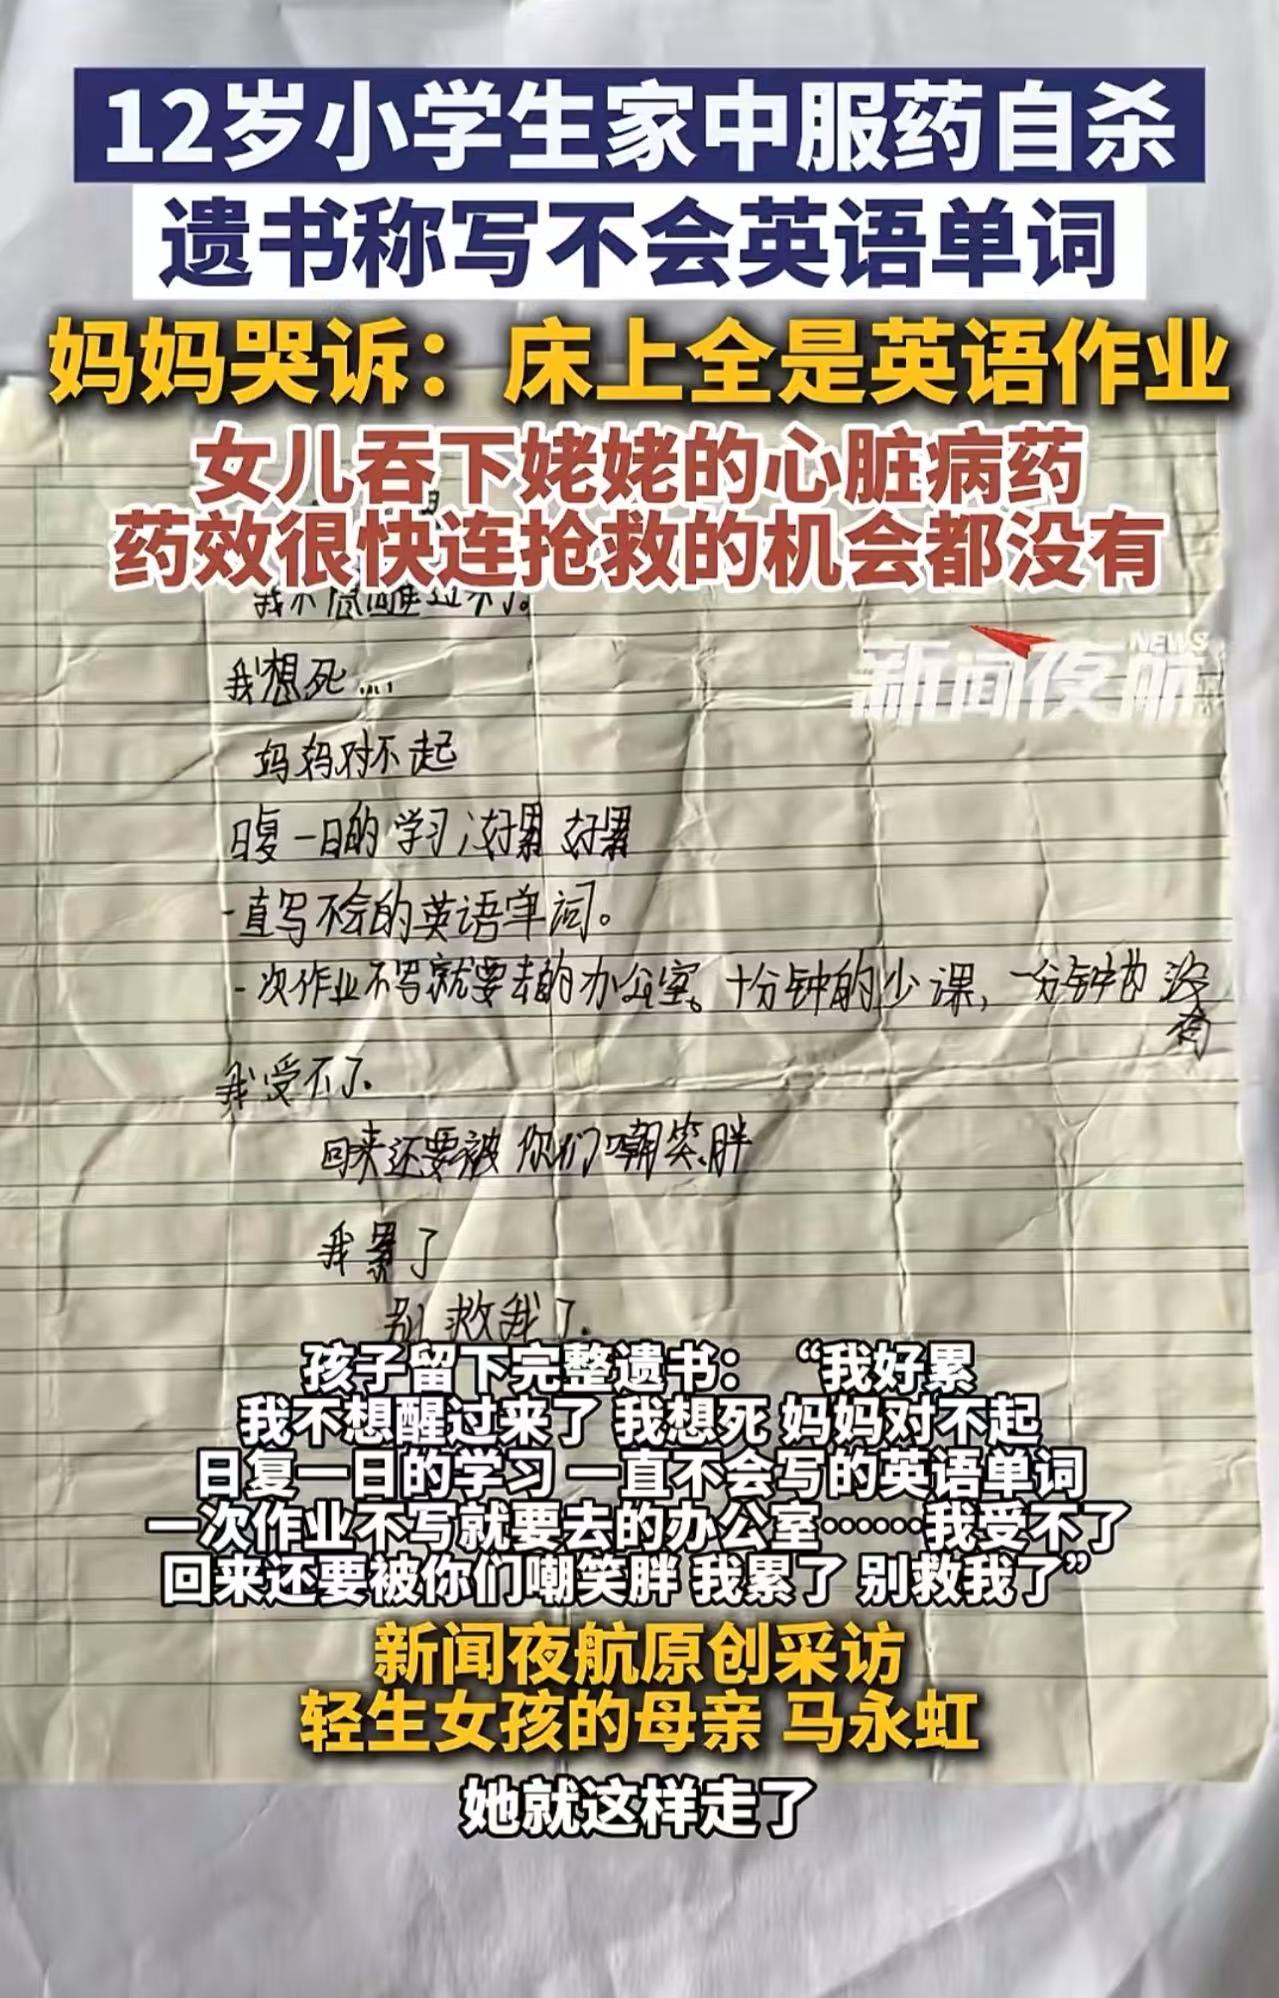 12岁小学生家中服药自杀
遗书称写不会英语单词
妈妈哭诉：床上全是英语作业
女儿吞下姥姥的心脏病药
药效很快连抢救的机会都没有
NEWS
新闻夜航
我想死....
妈妈对不起
日复一日的学习，好累 好累
一直写不会的英语单词。
一次作业不写就要去的办公室。十分钟的少课，一分钟也没有
我受不了.
回来还要被你们嘲笑胖
我累了
别救我了.
孩子留下完整遗书：“我好累
我不想醒过来了 我想死 妈妈对不起
日复一日的学习 一直不会写的英语单词
一次作业不写就要去的办公室……我受不了
回来还要被你们嘲笑胖 我累了 别救我了”
新闻夜航原创采访
轻生女孩的母亲 马永虹
她就这样走了